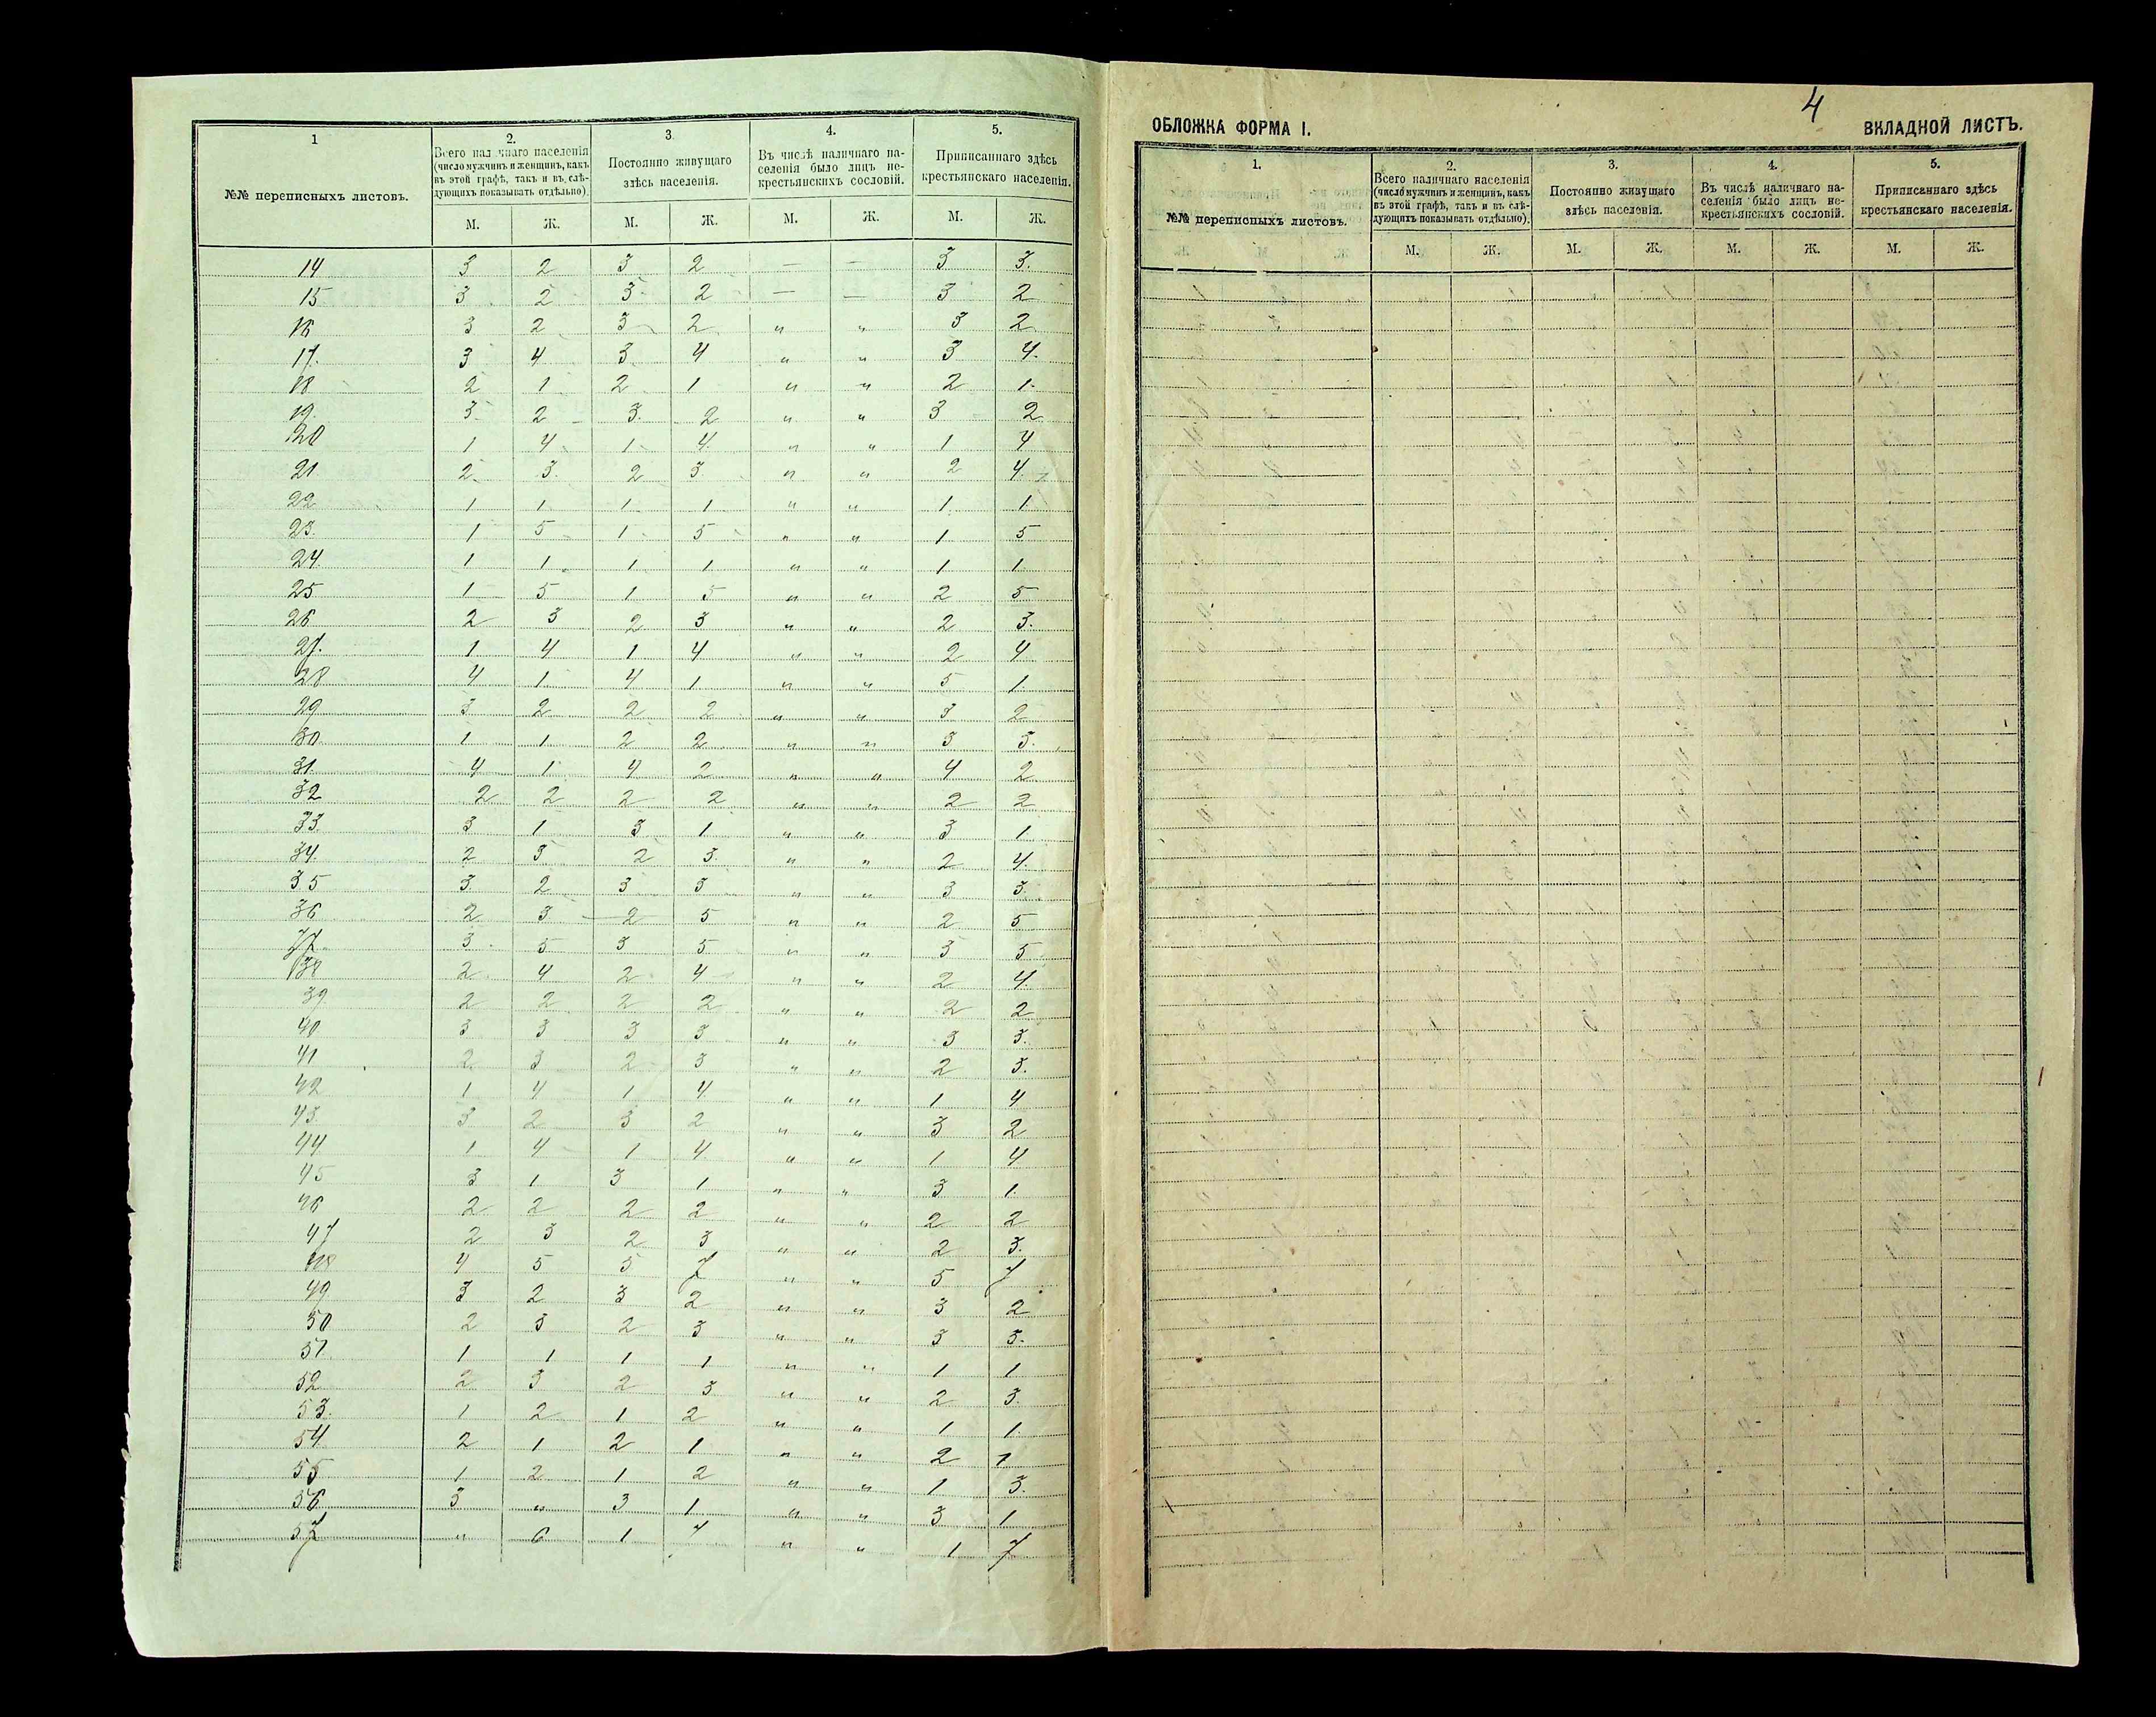 1 2. 3. 4. 5.
№№ переписныхъ листовъ. Всего наличнаго населенія (число мужчинъ и женщинъ, какъ въ этой графѣ, такъ и въ слѣдующихъ показывать отдѣльно). Постоянно живущаго здѣсь населенія. Въ числѣ наличнаго населенія было лицъ некрестьянскихъ сословій. Приписаннаго здѣсь крестьянскаго населенія.
М. Ж. М. Ж. М. Ж. М. Ж.
14 3 2 3 2 — — 3 3.
15 3 2 3 2 — — 3 2
16 3 2 3 2 " " 3 2
17. 3 4 3 4 " " 3 4.
18 2 1 2 1 " " 2 1.
19. 3 2 3. 2 " " 3 2
20 1 4 1 4 " " 1 4
21 2 3. 2 3. " " 2 4.
22 1 1 1 1 " " 1 1
23. 1 5 1 5 " " 1 5
24. 1 1 1 1 " " 1 1
25 1 5 1 5 " " 2 5
26 2 3 2 3 " " 2 3.
27. 1 4 1 4 " " 2 4
28 4 1 4 1 " " 5 1.
29 3 2 2 2 " " 3 2
30 1 1 2 2 " " 3 3.
31. 4 1 4 2 " " 4 2
32 2 2 2 2 " " 2 2
33. 3 1 3 1 " " 3 1
34. 2 3 2 3. " " 2 4.
35 3 2 3 3 " " 3 3.
36 2 3 2 5 " " 2 5
37. 3 5 3 5 " " 3 5
38 2 4 2 4 " " 2 4.
39. 2 2 2 2 " " 2 2
40 3 3 3 3 " " 3 3.
41 2 3 2 3 " " 2 3.
42 1 4 1 4 " " 1 4
43 3 2 3 2 " " 3 2
44 1 4 1 4 " " 1 4
45 3 1 3 1 " " 3 1.
46 2 2 2 2 " " 2 2
47 2 3 2 3 " " 2 3.
48 4 5 5 7 " " 5 7
49 3 2 3 2 " " 3 2
50 2 3 2 3 " " 3 3.
51. 1 1 1 1 " " 1 1
52 2 3 2 3 " " 2 3.
53. 1 2 1 2 " " 1 1.
54. 2 1 2 1 " " 2 1
55 1 2 1 2 " " 1 3.
56. 3 " 3 1 " " 3 1
57 " 6 1 7 " " 1 7
4
ОБЛОЖКА ФОРМА I. ВКЛАДНОЙ ЛИСТЪ.
1. 2. 3. 4. 5.
№№ переписныхъ листовъ. Всего наличнаго населенія (число мужчинъ и женщинъ, какъ въ этой графѣ, такъ и въ слѣдующихъ показывать отдѣльно). Постоянно живущаго здѣсь населенія. Въ числѣ наличнаго населенія было лицъ некрестьянскихъ сословій. Приписаннаго здѣсь крестьянскаго населенія.
М. Ж. М. Ж. М. Ж. М. Ж.